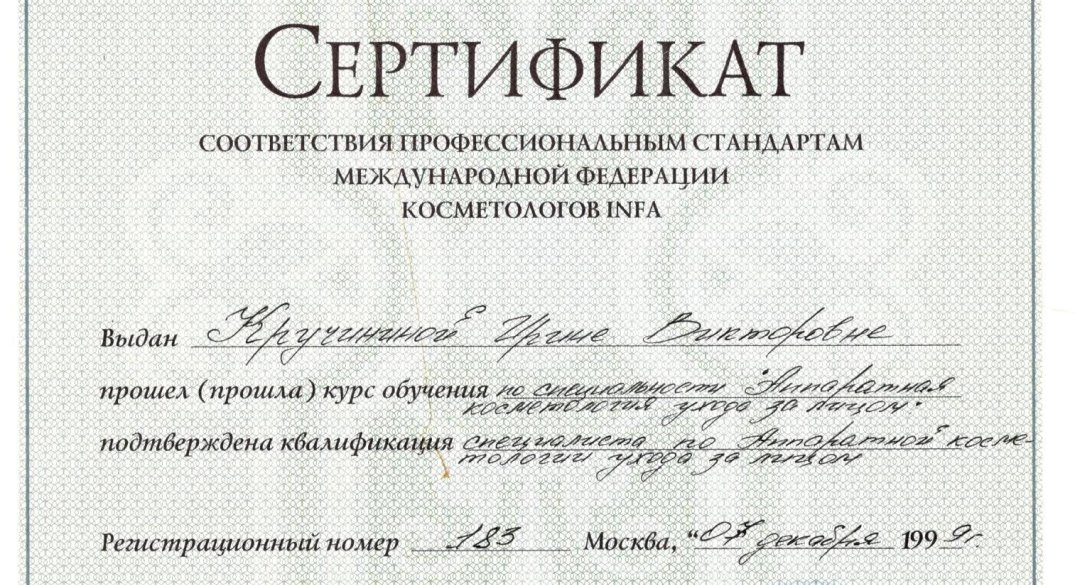 СЕРТИФИКАТ
СООТВЕТСТВИЯ ПРОФЕССИОНАЛЬНЫМ СТАНДАРТАМ
МЕЖДУНАРОДНОЙ ФЕДЕРАЦИИ
КОСМЕТОЛОГОВ INFA
Выдан Кручининой Ирине Викторовне
прошел (прошла) курс обучения по специальности "Аппаратная
косметология ухода за лицом"
подтверждена квалификация специалиста по Аппаратной косме-
тологии ухода за лицом
Регистрационный номер 183 Москва, "07 декабря 1999г.